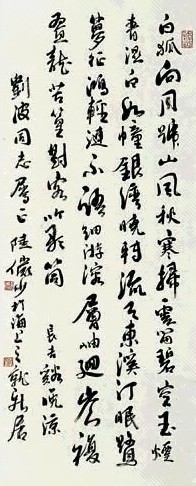 白狐向月號山風秋寒掃雲留碧空玉煙
青濕白如幢銀灣曉轉流天東溪汀眠鷺
夢征鴻輕漣不語細游溶層岫迴岑複
疊龍苦篁對客吟歌筒 長吉谿晚涼
劉波同志屬正 陸儼少於海上之新居